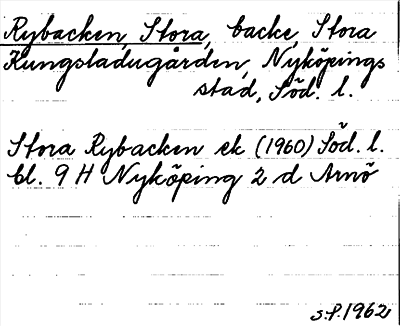 Rybacken, Stora, backe, Stora
Kungsladugården, Nyköpings
stad, Söd. l.
Stora Rybacken ek (1960) Söd. l.
bl. 9 H Nyköping 2 d Arnö
s.f. 1962